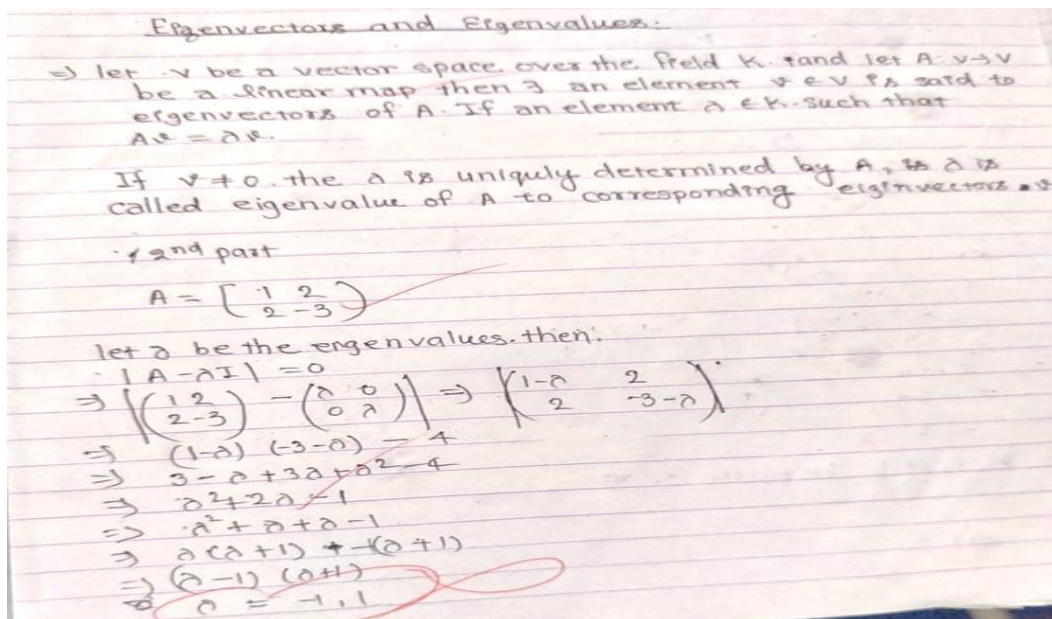 Eigenvectors and Eigenvalues.
⇒ let v be a vector space over the field K. and let A: v→v
be a linear map then ∃ an element v ∈ v is said to
eigenvectors of A. If an element λ ∈ K. such that
Av = λv.
If v ≠ 0. the λ is uniquly determined by A, λ is
called eigenvalue of A to corresponding eiginvectors v
2nd part
A = [ 1 2
2 -3 )
let λ be the engenvalues. then:
|A-λI| = 0
⇒ |( 1 2
2 -3 ) - ( λ 0
0 λ )| ⇒ |( 1-λ 2
2 -3-λ )|
⇒ (1-λ) (-3-λ) - 4
⇒ 3 - λ + 3λ + λ² - 4
⇒ λ² + 2λ - 1
⇒ λ² + λ + λ - 1
⇒ λ(λ+1) + -1(λ+1)
⇒ (λ-1) (λ+1)
λ = -1, 1